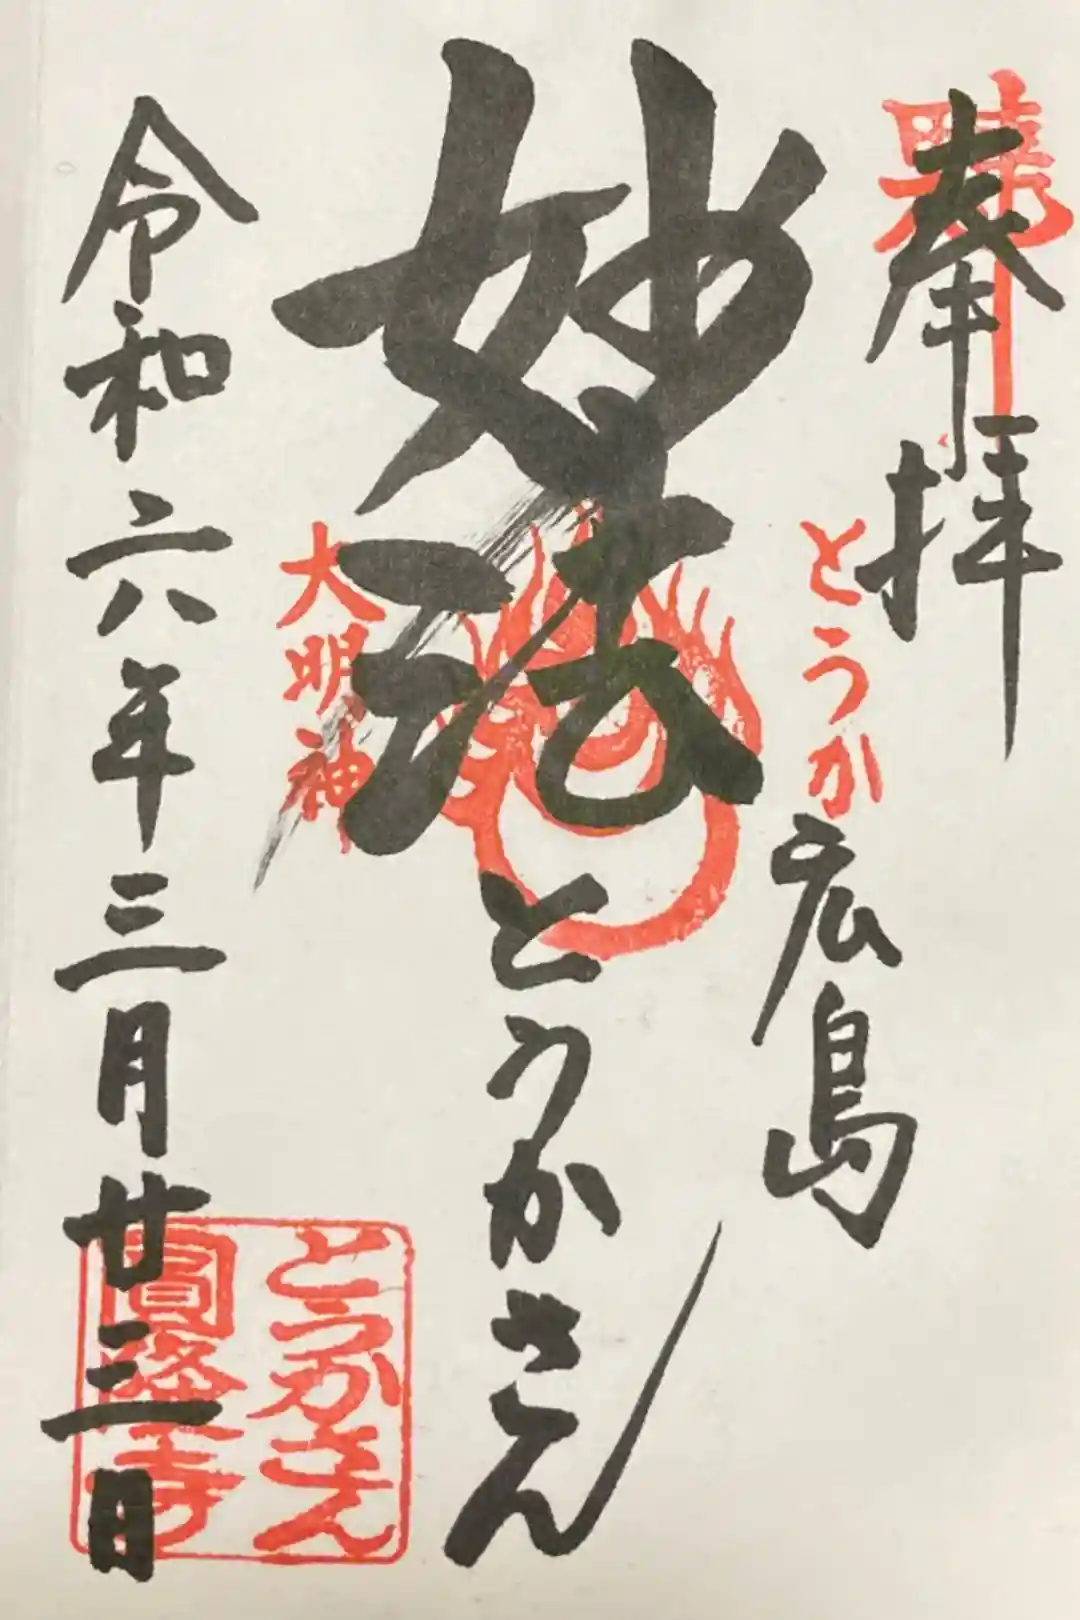 奉拝
広島
妙法
とうかさん
令和六年三月廿三日
とうか
大明神
とうかさん
圓隆寺